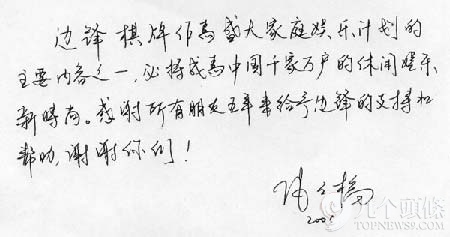 边锋棋牌作为盛大家庭娱乐计划的
主要内容之一，必将成为中国千家万户的休闲娱乐
新时尚。感谢所有朋友五年来给予边锋的支持和
帮助，谢谢你们！
陈天桥
2005
九个頭條
TOPNEWS9.COM